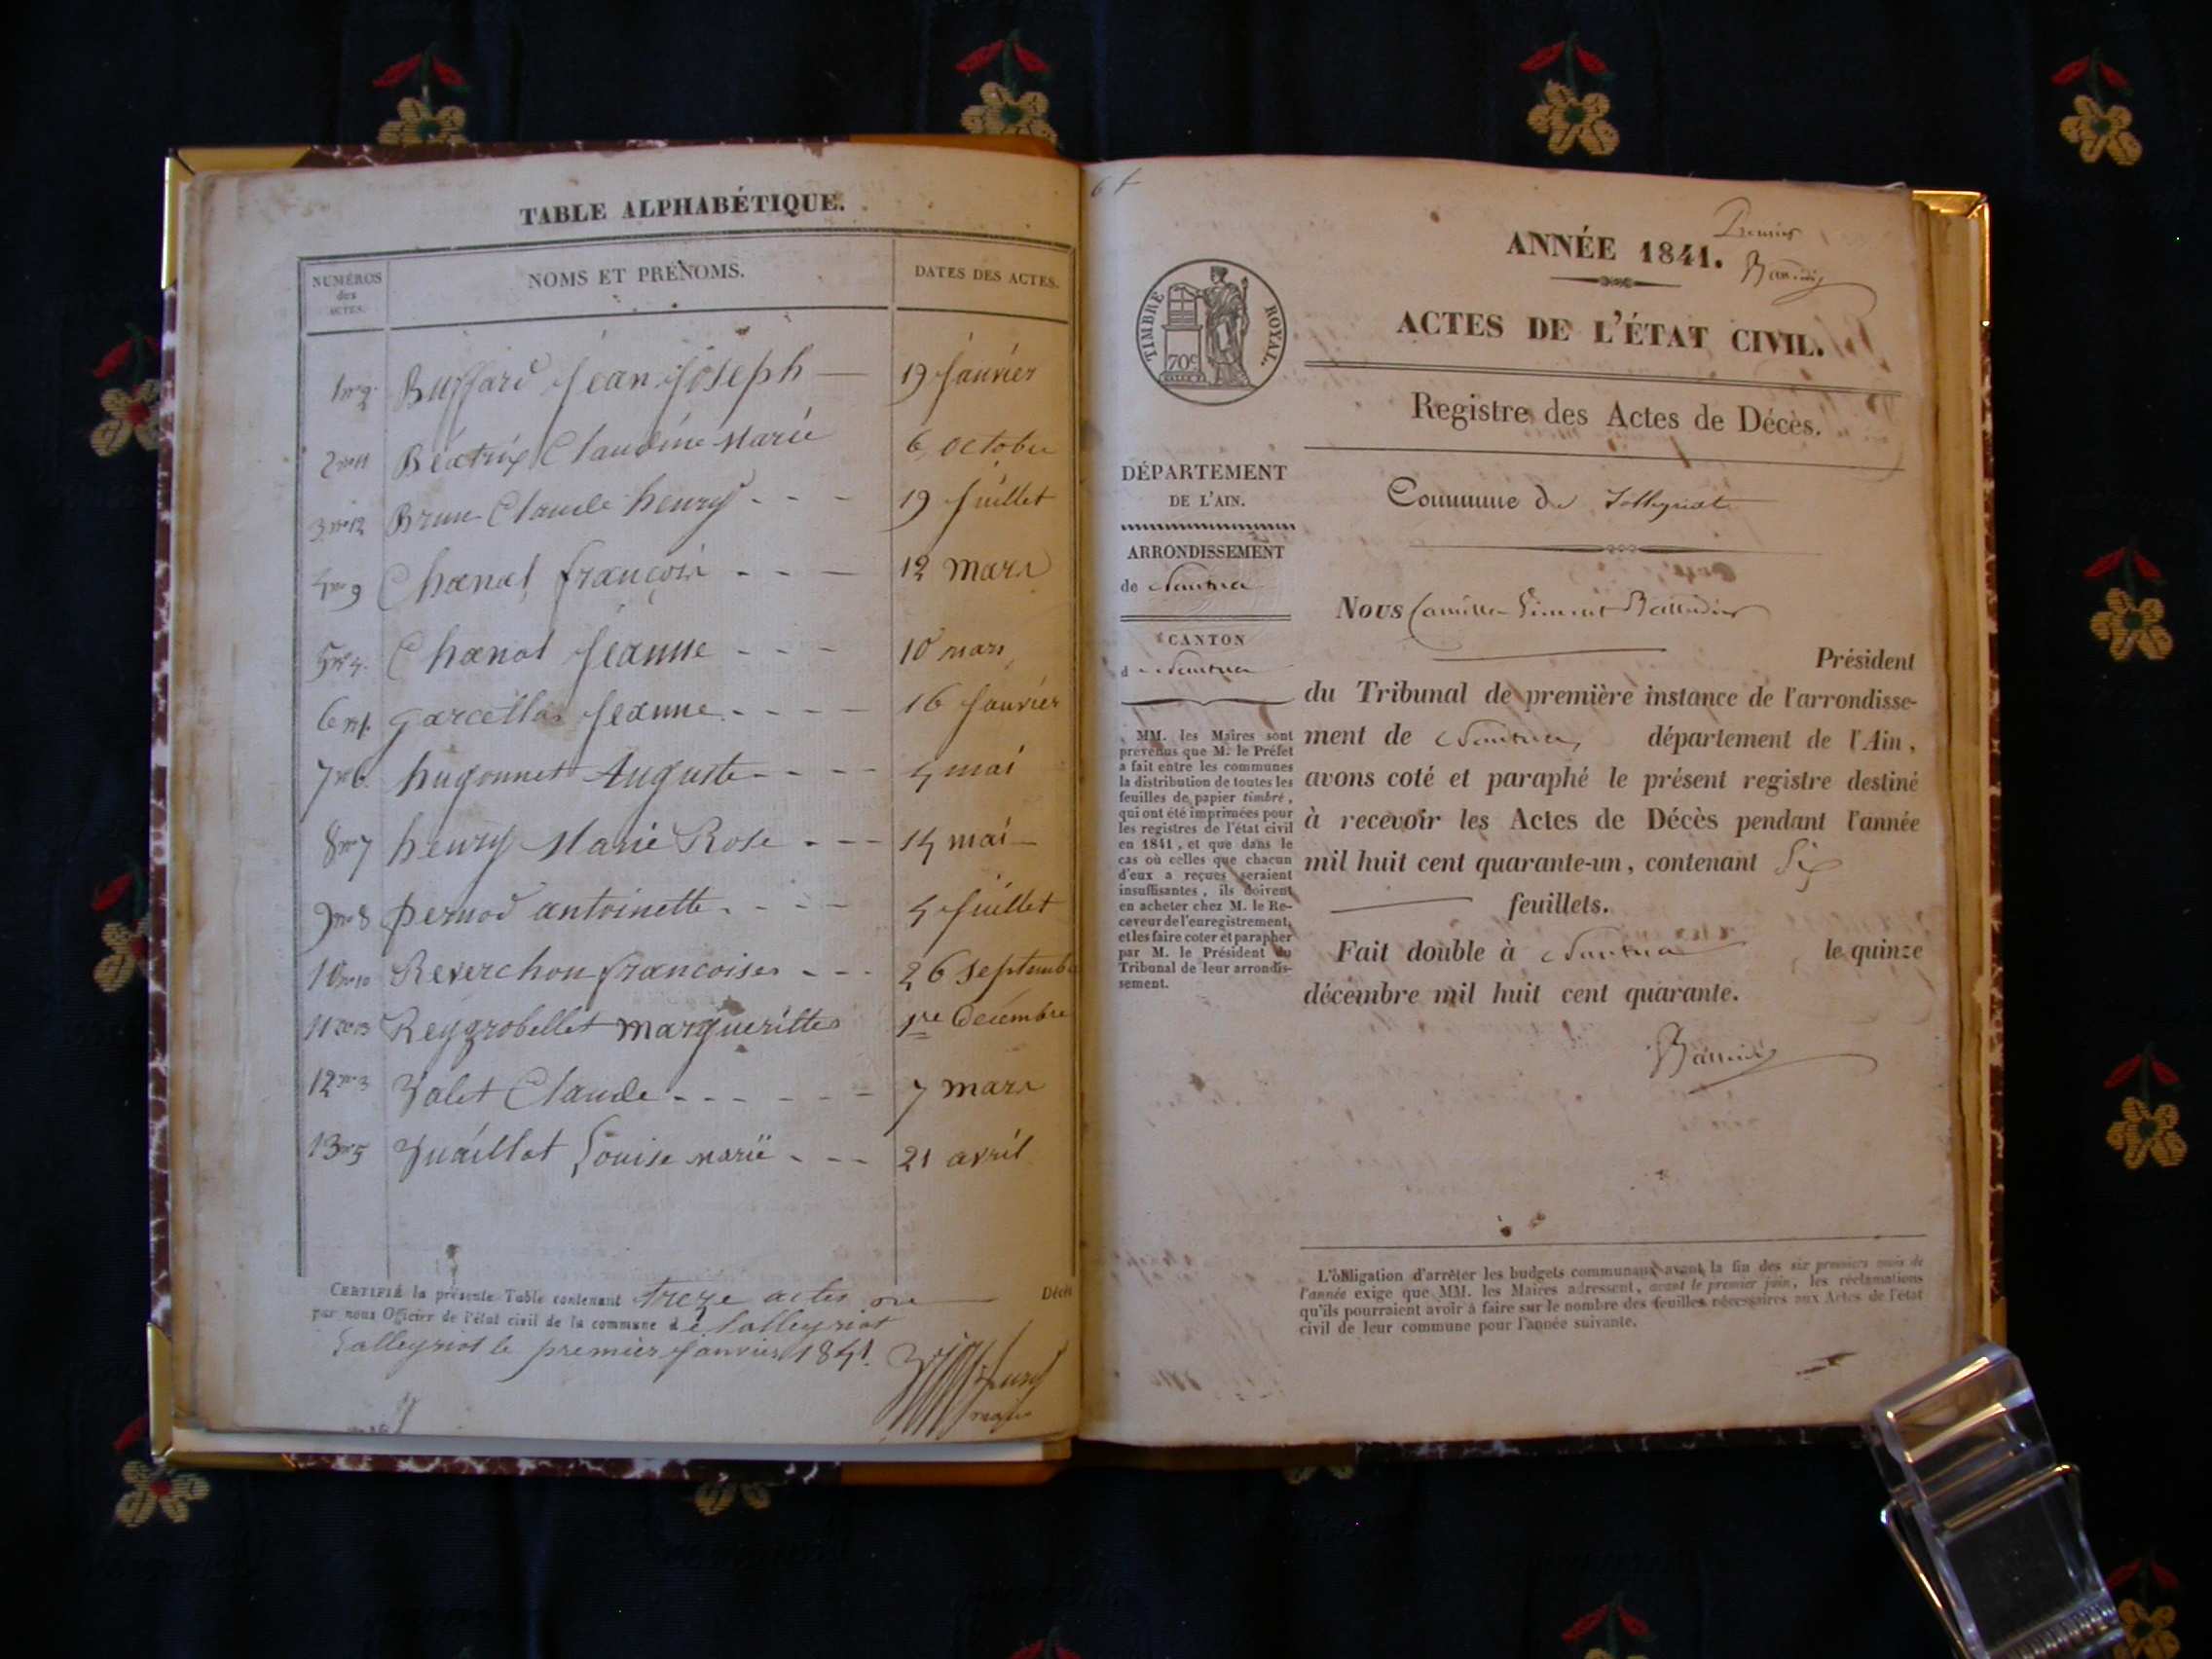 TABLE ALPHABÉTIQUE.
NUMÉROS des ACTES.
NOMS ET PRÉNOMS.
DATES DES ACTES.
1 no 2 Buffard Jean Joseph 19 janvier
2 no 11 Béatrix Claudine Marie 6 octobre
3 no 12 Brun Claude henry 19 Juillet
4 no 9 Chanal françois 12 mars
5 no 4 Chanal Jeanne 10 mars
6 no 1 Jeanne 16 janvier
7 no 6 hugonnet Auguste 4 mai
8 no 7 henry Marie Rose 14 mai
9 no 8 pernod antoinette 4 Juillet
10 no 10 Reverchon francoise 26 septembre
11 no 13 Reygrobellet margueritte 1re Décembre
12 no 3 Valet Claude 7 mars
13 no 5 Vuaillat Louise marie 21 avril
CERTIFIÉ la présente Table contenant treze actes de Décès
par nous Officier de l'état civil de la commune de
le premier janvier 1841.
ANNÉE 1841.
Premier
TIMBRE ROYAL.
70c
ACTES DE L'ÉTAT CIVIL.
Registre des Actes de Décès.
DÉPARTEMENT
DE L'AIN.
ARRONDISSEMENT
de Nantua
CANTON
d Nantua
MM. les Maires sont
prévenus que M. le Préfet
a fait entre les communes
la distribution de toutes les
feuilles de papier timbré,
qui ont été imprimées pour
les registres de l'état civil
en 1841, et que dans le
cas où celles que chacun
d'eux a reçues seraient
insuffisantes, ils doivent
en acheter chez M. le Re-
ceveur de l'enregistrement,
et les faire coter et parapher
par M. le Président du
Tribunal de leur arrondis-
sement.
Commune de
Nous Camille Vincent
Président
du Tribunal de première instance de l'arrondisse-
ment de Nantua, département de l'Ain,
avons coté et paraphé le présent registre destiné
à recevoir les Actes de Décès pendant l'année
mil huit cent quarante-un, contenant Six
feuillets.
Fait double à Nantua le quinze
décembre mil huit cent quarante.
L'obligation d'arrêter les budgets communaux avant la fin des six premiers mois de
l'année exige que MM. les Maires adressent, avant le premier juin, les réclamations
qu'ils pourraient avoir à faire sur le nombre des feuilles nécessaires aux Actes de l'état
civil de leur commune pour l'année suivante.